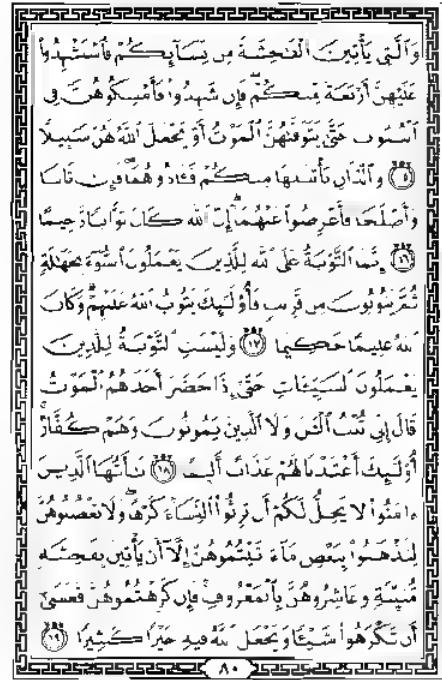 وَٱلَّٰتِي يَأْتِينَ ٱلْفَٰحِشَةَ مِن نِّسَآئِكُمْ فَٱسْتَشْهِدُوا۟
عَلَيْهِنَّ أَرْبَعَةً مِّنكُمْ ۖ فَإِن شَهِدُوا۟ فَأَمْسِكُوهُنَّ فِي
ٱلْبُيُوتِ حَتَّىٰ يَتَوَفَّىٰهُنَّ ٱلْمَوْتُ أَوْ يَجْعَلَ ٱللَّهُ لَهُنَّ سَبِيلًا
﴿١٥﴾ وَٱلَّذَانِ يَأْتِيَٰنِهَا مِنكُمْ فَـَٔاذُوهُمَا ۖ فَإِن تَابَا
وَأَصْلَحَا فَأَعْرِضُوا۟ عَنْهُمَآ ۗ إِنَّ ٱللَّهَ كَانَ تَوَّابًا رَّحِيمًا
﴿١٦﴾ إِنَّمَا ٱلتَّوْبَةُ عَلَى ٱللَّهِ لِلَّذِينَ يَعْمَلُونَ ٱلسُّوٓءَ بِجَهَٰلَةٍ
ثُمَّ يَتُوبُونَ مِن قَرِيبٍ فَأُو۟لَٰٓئِكَ يَتُوبُ ٱللَّهُ عَلَيْهِمْ ۗ وَكَانَ
ٱللَّهُ عَلِيمًا حَكِيمًا ﴿١٧﴾ وَلَيْسَتِ ٱلتَّوْبَةُ لِلَّذِينَ
يَعْمَلُونَ ٱلسَّيِّـَٔاتِ حَتَّىٰٓ إِذَا حَضَرَ أَحَدَهُمُ ٱلْمَوْتُ
قَالَ إِنِّي تُبْتُ ٱلْـَٰٔنَ وَلَا ٱلَّذِينَ يَمُوتُونَ وَهُمْ كُفَّارٌ ۚ
أُو۟لَٰٓئِكَ أَعْتَدْنَا لَهُمْ عَذَابًا أَلِيمًا ﴿١٨﴾ يَٰٓأَيُّهَا ٱلَّذِينَ
ءَامَنُوا۟ لَا يَحِلُّ لَكُمْ أَن تَرِثُوا۟ ٱلنِّسَآءَ كَرْهًا ۖ وَلَا تَعْضُلُوهُنَّ
لِتَذْهَبُوا۟ بِبَعْضِ مَآ ءَاتَيْتُمُوهُنَّ إِلَّآ أَن يَأْتِينَ بِفَٰحِشَةٍ
مُّبَيِّنَةٍ ۚ وَعَاشِرُوهُنَّ بِٱلْمَعْرُوفِ ۚ فَإِن كَرِهْتُمُوهُنَّ فَعَسَىٰٓ
أَن تَكْرَهُوا۟ شَيْـًٔا وَيَجْعَلَ ٱللَّهُ فِيهِ خَيْرًا كَثِيرًا ﴿١٩﴾
٨٠